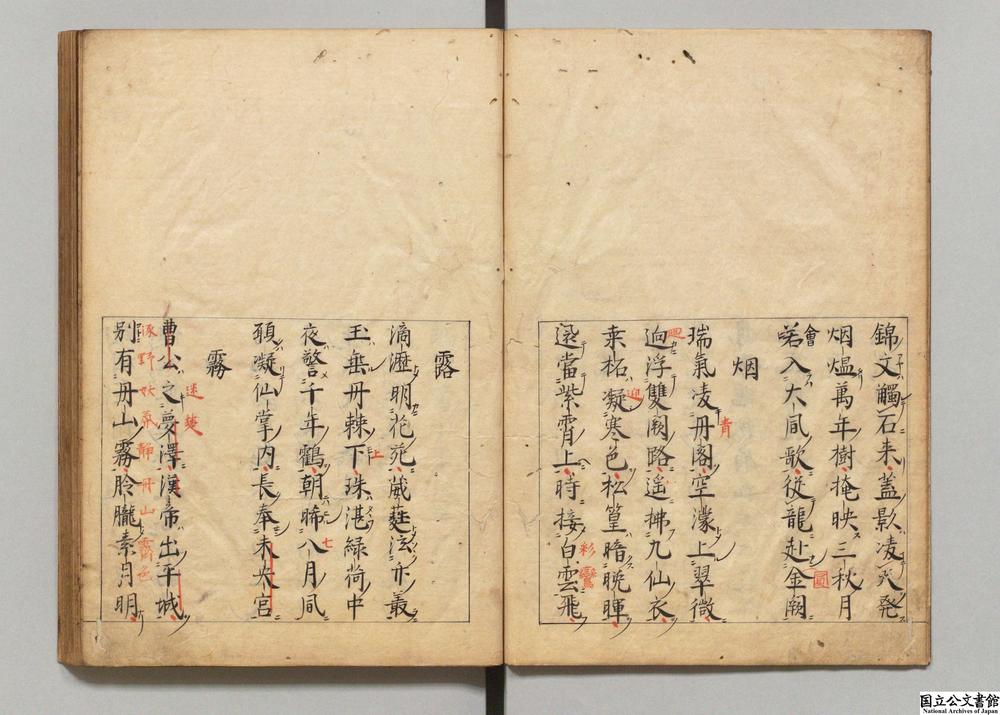 錦文觸石来蓋影凌天発
烟煴萬年樹掩映三秋月
會
入大風歌従龍赴金闕
圓
烟
瑞氣凌丹閣空濛上翠微
青
迥浮雙闕路遥拂九仙衣
桒柘凝寒色松篁暗晩暉
迎
還當紫霄上時接白雲飛
彩鸞
露
滴瀝明花苑葳蕤泫竹叢
玉垂丹棘下珠湛緑荷中
上
夜警千年鶴朝晞八月風
七
願凝仙掌内長奉未央宮
霧
曹公之夢澤漢帝出平城
迷楚
涿野妖氛静丹山霽色
別有丹山霧朎朧素月明
国立公文書館
National Archives of Japan